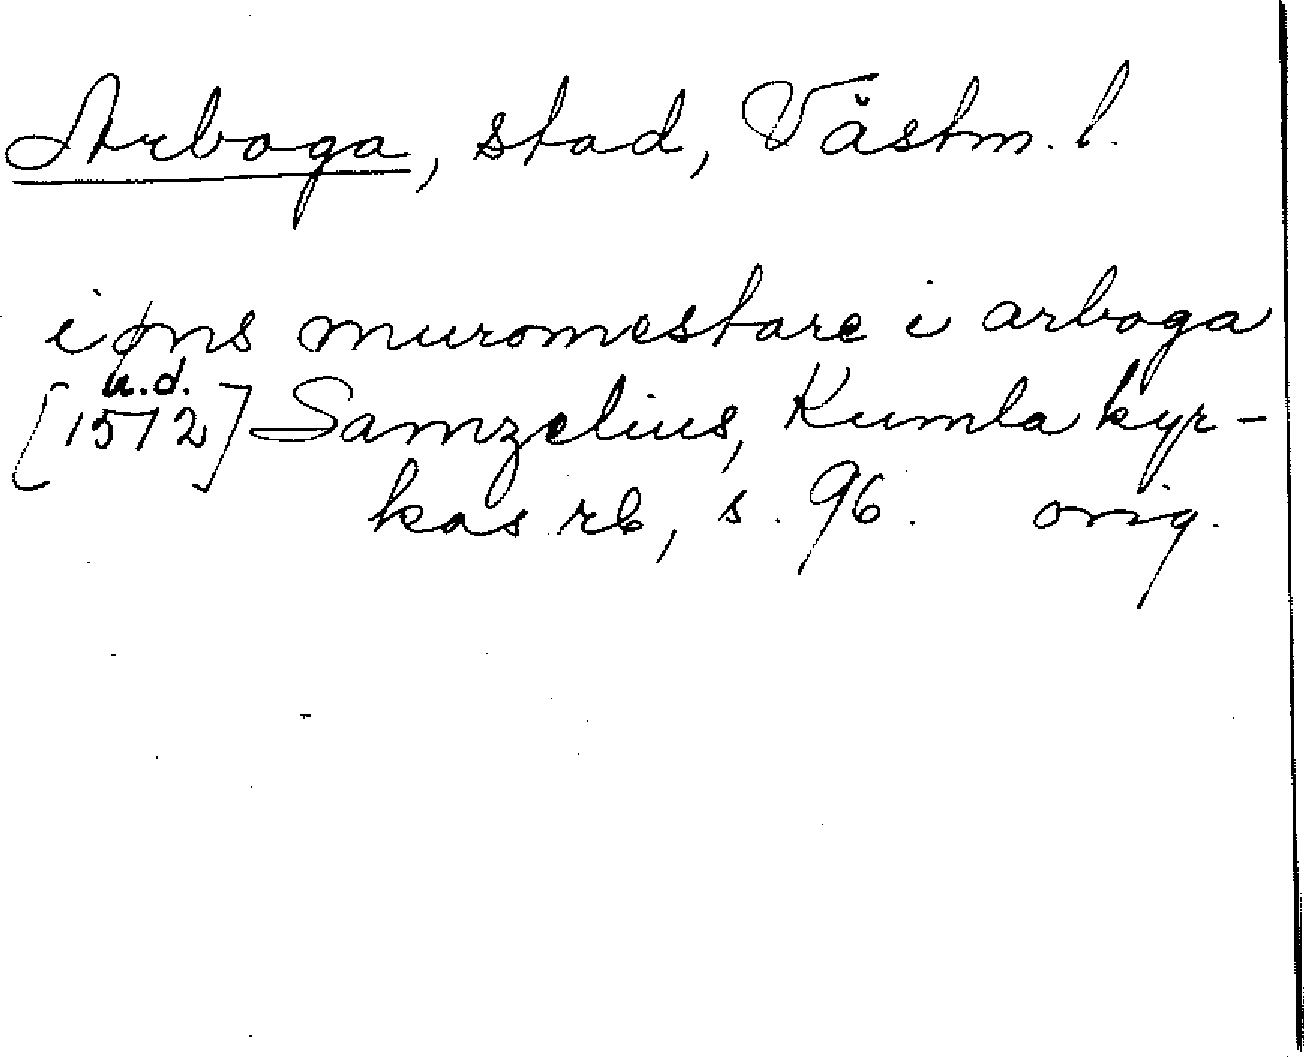 Arboga, stad, Västm. l.
jöns muromestare i arboga
u.d.
[1572] Samzelius, Kumla kyr-
kas rb, s. 96. orig.